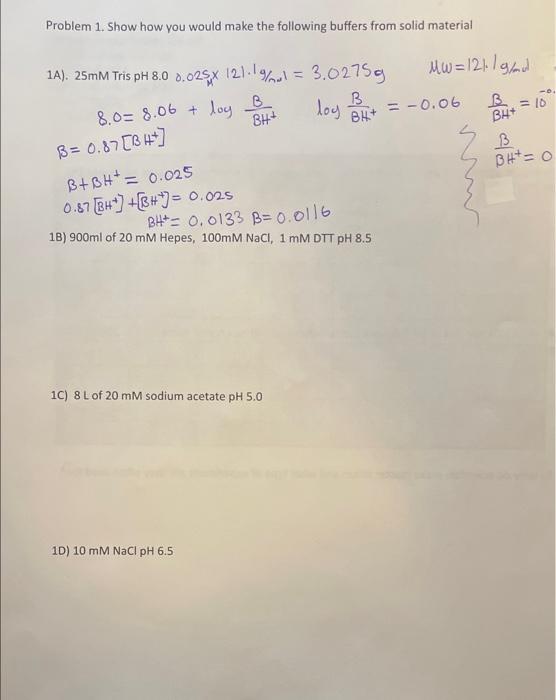 Problem 1. Show how you would make the following buffers from solid material
1A). 25mM Tris pH 8.0 0.025M x 121.1 g/mol = 3.0275g MW=121.1g/mol
8.0= 8.06 + log B/BH+ log B/BH+ = -0.06 B/BH+ = 10^-0.
B= 0.87[BH+] B/BH+ = 0
B+BH+ = 0.025
0.87[BH+]+[BH+]= 0.025
BH+= 0.0133 B=0.0116
1B) 900ml of 20 mM Hepes, 100mM NaCl, 1 mM DTT pH 8.5
1C) 8 L of 20 mM sodium acetate pH 5.0
1D) 10 mM NaCl pH 6.5